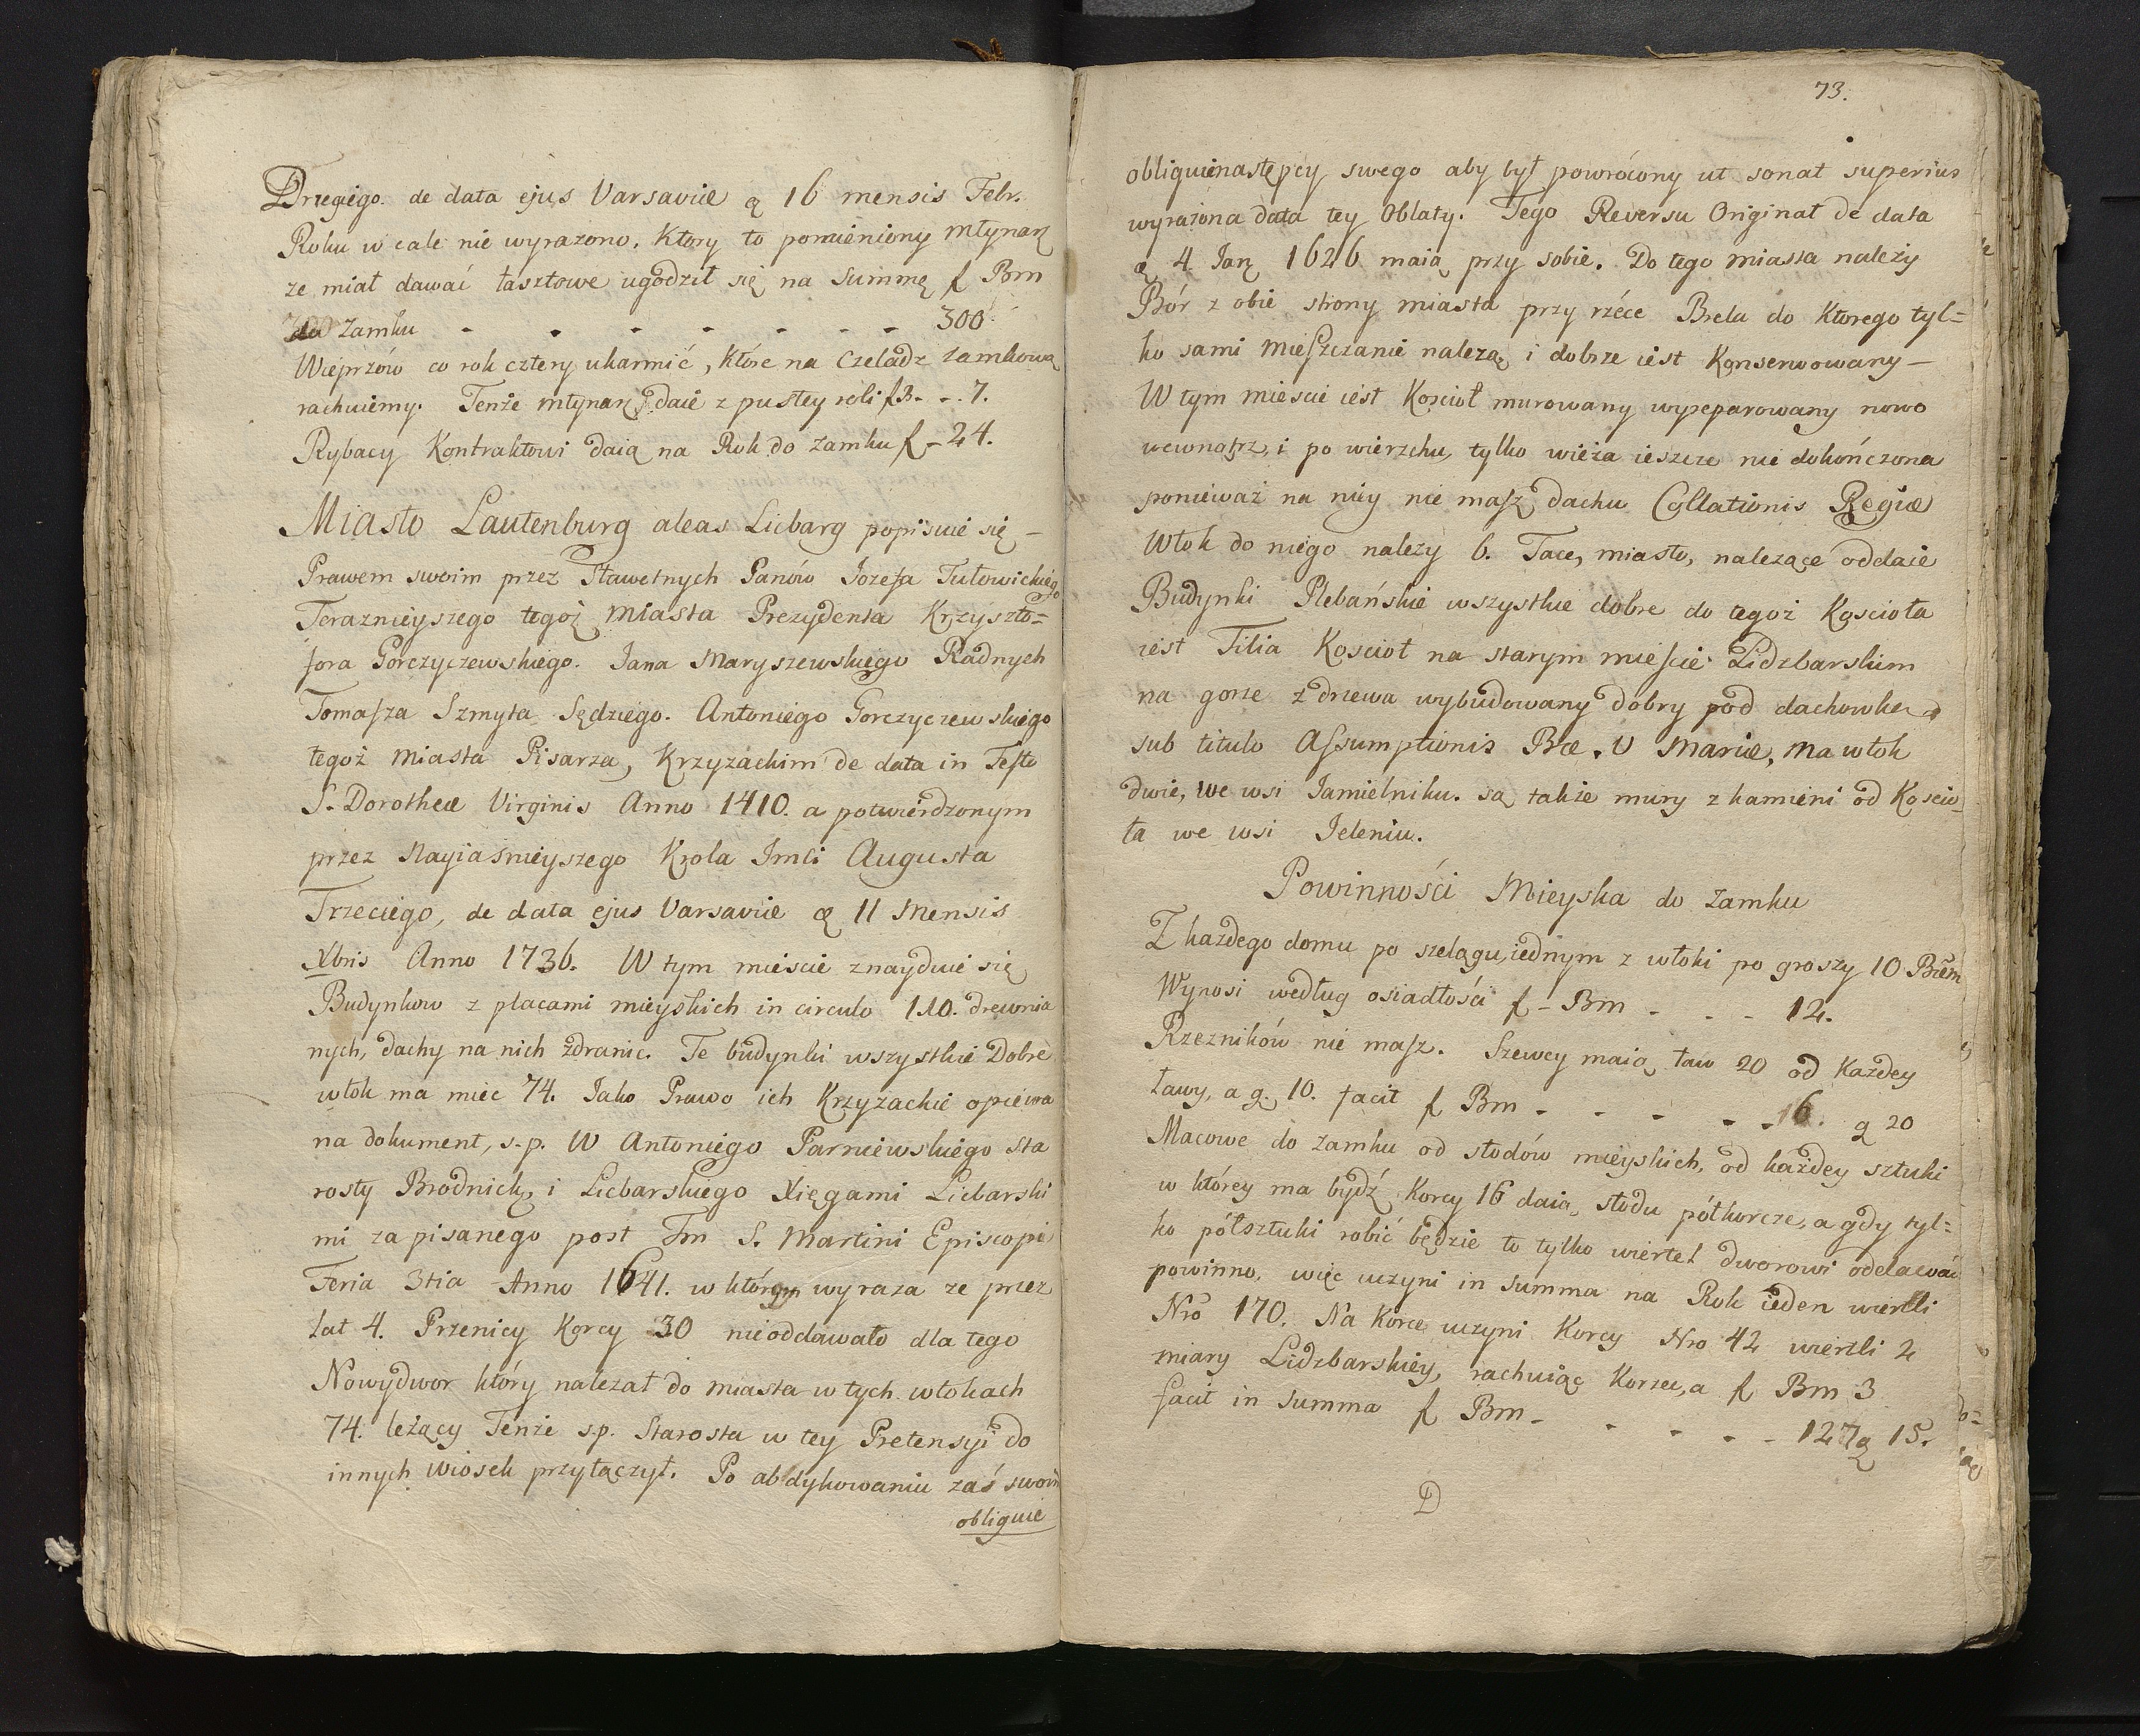 Drugiego. de data ejus Varsaviæ ą 16 mensis Febr.
Roku w cale nie wyrazono. Ktory to pomieniony młynarz
ze miał dawać łasztowe ugodził się na Summę f Bm
do Zamku - - - - - - - 300
Wieprzów co rok cztery ukarmić, które na Czeladz zamkową
rachuiemy. Tenże młynarz daie z pustey roli f 3. - . 7.
Rybacy Kontraktowi daią na Rok do zamku f - 24.
Miasto Lautenburg aleas Licbarg popisuie się -
Prawem swoim przez Sławetnych Panów Jozefa Tułowickiego
Teraznieyszego tegoż Miasta Prezydenta Krzyszto=
fora Gorczyczewskiego. Jana Maryszewskiego Radnych
Tomasza Szmyta Sędziego. Antoniego Gorczyczewskiego
tegoż Miasta Pisarza, Krzyzackim de data in Festo
S. Dorotheæ Virginis Anno 1410. a potwierdzonym
przez Nayiaśnieyszego Krola Jmci Augusta
Trzeciego, de data ejus Varsaviæ ą 11 Mensis
Xbris Anno 1736. W tym mieście znayduie się
Budynkow z placami mieyskich in circulo 110. drewnia
nych, dachy na nich zdranic. Te budynki wszystkie Dobre
włok ma miec 74. Jako Prawo ich Krzyzackie opiewa
na dokument, s. p. W Antoniego Parniewskiego sta
rosty Brodnick, i Licbarskiego Xięgami Licbarski
mi zapisanego post Fm S. Martini Episcopi
Feria 3tia Anno 1641. w którym wyraza ze przez
lat 4. Przenicy Korcy 30 nieoddawało dla tego
Nowydwor który nalezał do miasta w tych włokach
74. leżący Tenże s.p. Starosta w tey Pretensyi do
innych wiosek przyłączył. Po abdykowaniu zaś swoim
obliguie
73.
obliguie następcy swego aby był powrócony ut sonat superius
wyrażona data tey Oblaty. Tego Reversu Originał de data
ą 4 Jan 1626 maią przy sobie. Do tego miasta należy
Bór z obie strony miasta przy rzéce Brelu do Ktorego tyl=
ko sami Mieszczanie należą i dobrze iest Konserwowany -
W tym mieście iest Kosciół murowany wyreparowany nowo
wewnątrz, i po wierzchu, tylko wieża ieszcze nie dokończona
ponieważ na niey nie masz dachu Collationis Regiæ
Włok do niego należy 6. Tace, miasto, należące oddaie
Budynki Plebańskie wszystkie dobre do tegoż Kościoła
iest Filia Kościoł na starym mieście Lidzbarskim
na gorze z drzewa wybudowany dobry pod dachowką
sub titulo Assumptionis Bæ. V Mariæ, Ma włok
dwie, we wsi Jamielniku. są także mury z kamieni od Koscio
ła we wsi Jeleniu.
Powinności Mieyska do Zamku
Z każdego domu po szelągu, iednym z włoki po groszy 10 Bem
Wynosi według osiadłości f - Bm - - - 12.
Rzezników nie masz. Szewcy maią ław 20 od Każdey
ławy, a g. 10. facit f Bm - - - - - 6. g 20
Macowe do zamku od słodów mieyskich, od każdey sztuki
w którey ma bydź Korcy 16 daią, słodu półkorcze, a gdy tyl=
ko półsztuki robić będzie to tylko wiertel dworowi oddawać
powinno, więc uczyni in Summa na Rok ieden wiertli
Nro 170. Na Korce uczyni Korcy Nro 42 wiertli 2
miary Lidzbarskiey, rachuiąc Korzec, a f Bm 3
facit in Summa f Bm - - - - - 127 g 15.
D